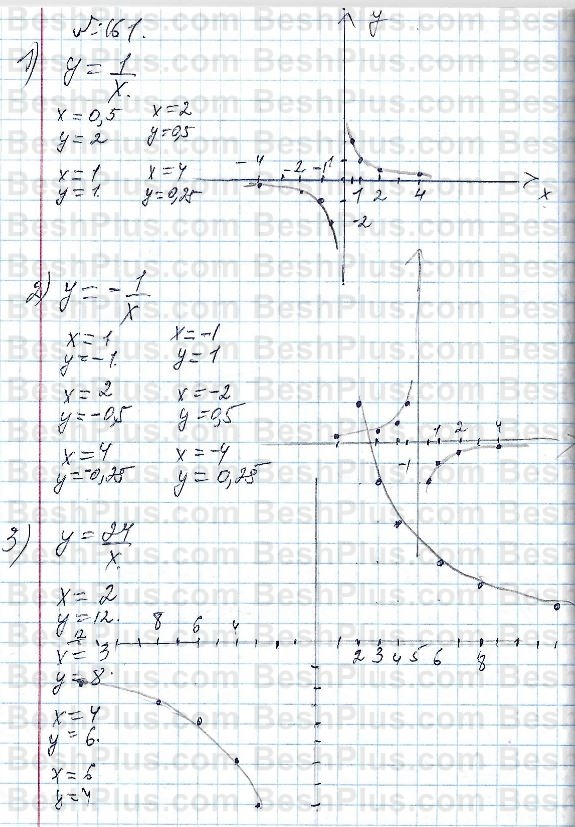 № 661.
1) y = 1/x
x = 0,5 x = 2
y = 2 y = 0,5
x = 1 x = 4
y = 1. y = 0,25
y
-4 -2 -1 1
1 2 4 x
-2
2) y = - 1/x
x = 1 x = -1
y = -1. y = 1
x = 2 x = -2
y = -0,5 y = 0,5
x = 4 x = -4
y = -0,25 y = 0,25
1 2 4
-1
3) y = 24/x
x = 2
y = 12.
x = 3
y = 8.
x = 4
y = 6.
x = 6
y = 4
8 6 4
2 3 4 5 6 8
BeshPlus.com